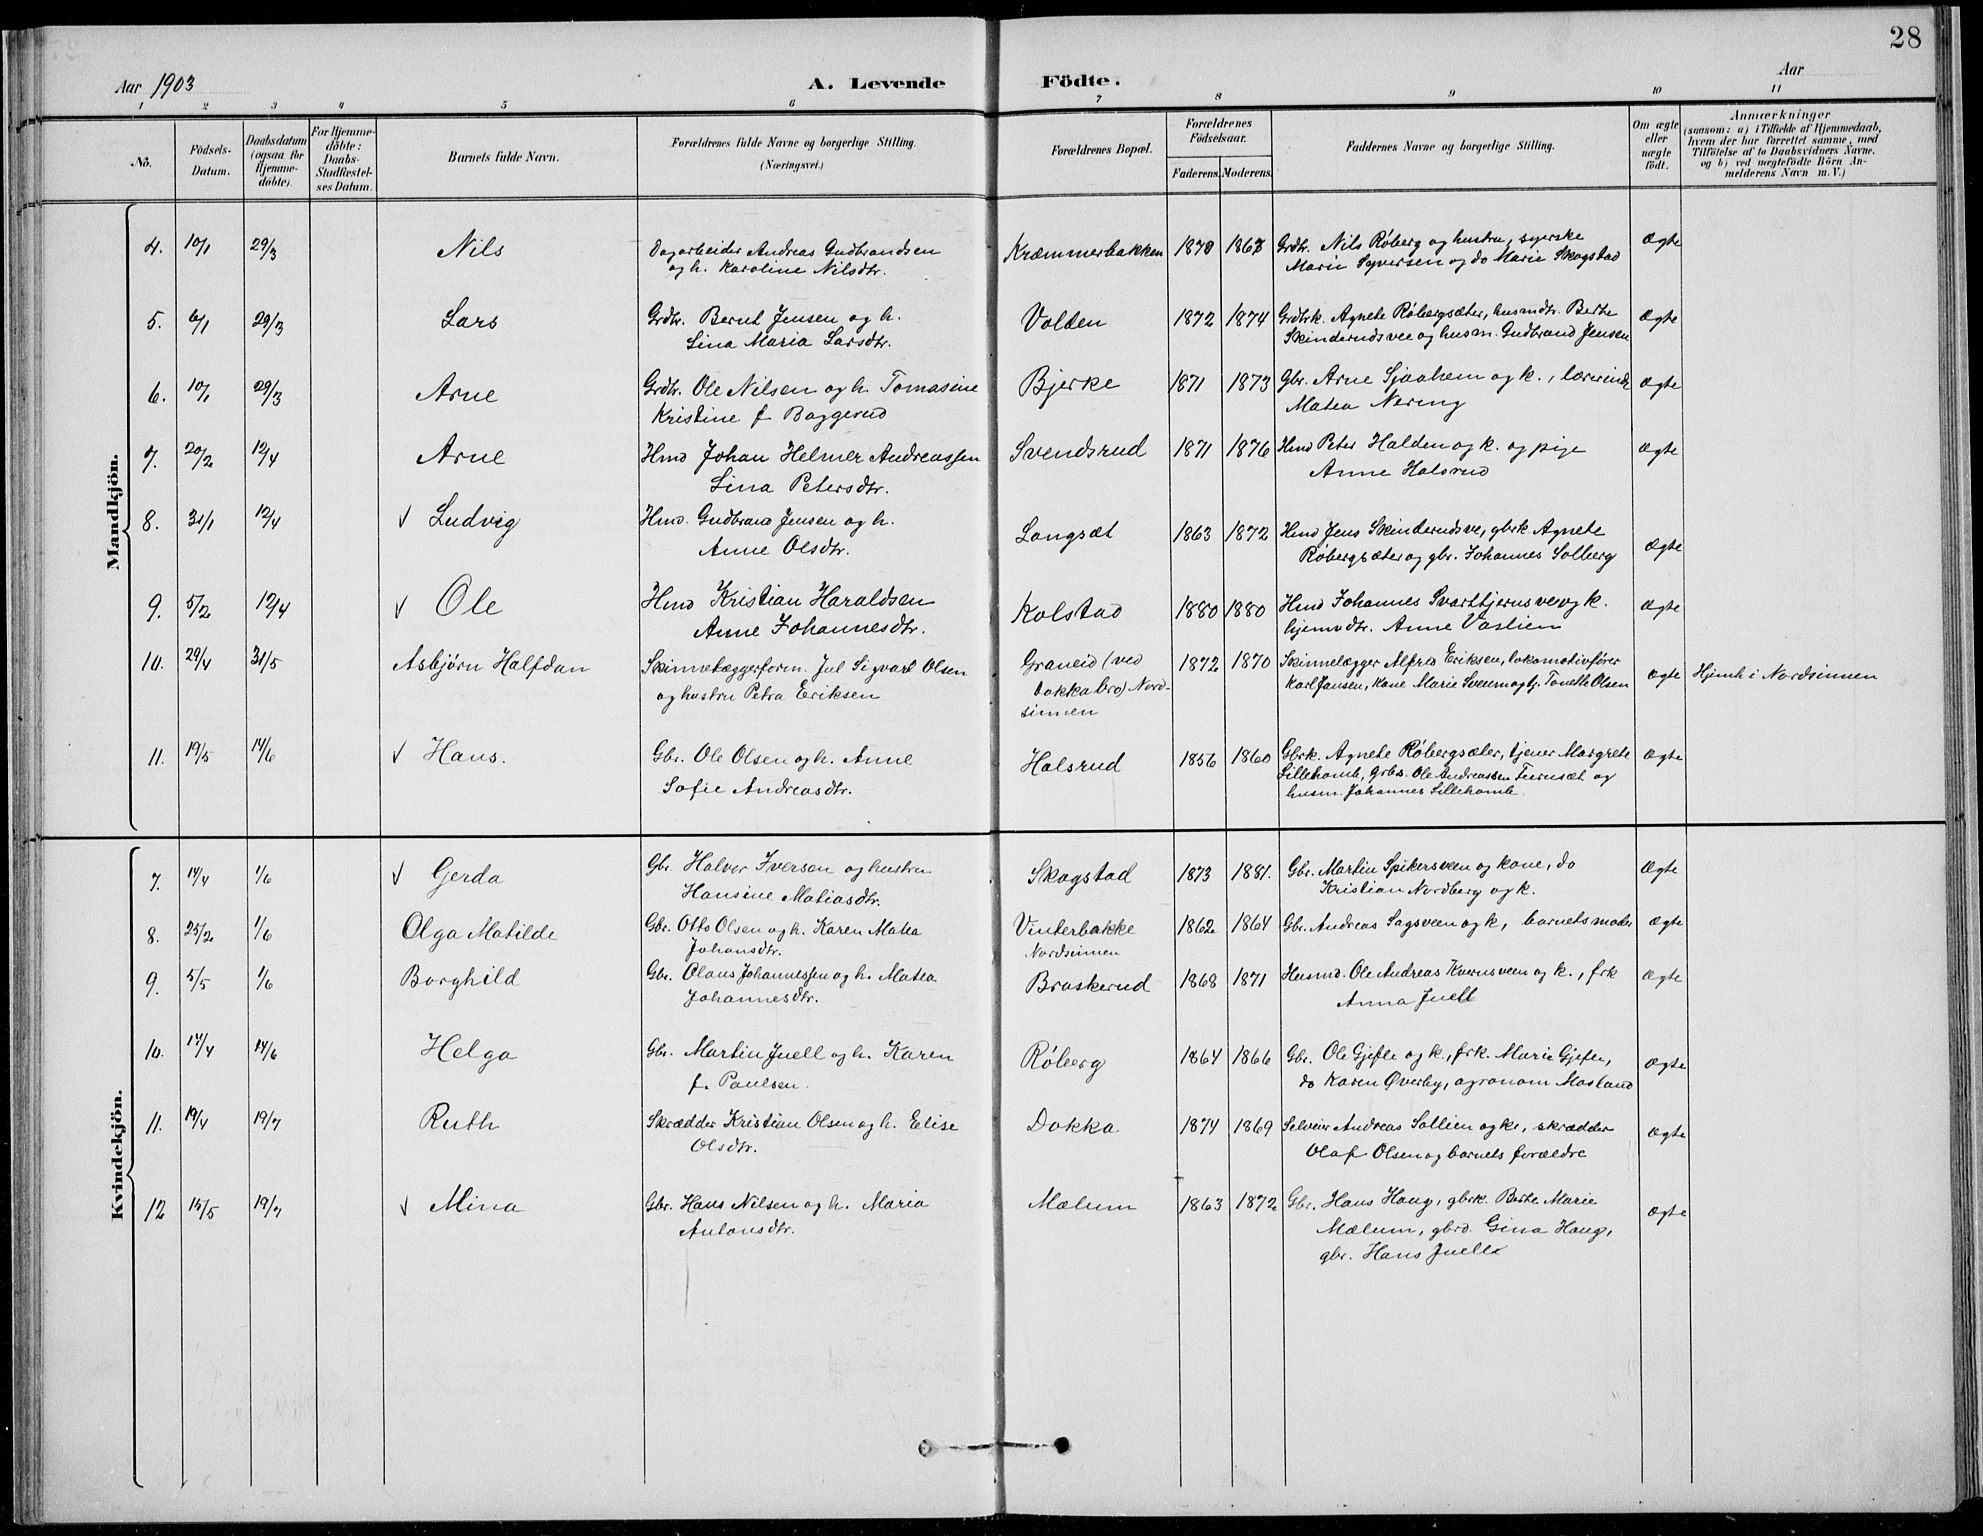 28
Aar 1903
A. Levende
Födte.
Aar
1 2 3 4 5 6 7 8 9 10 11
No.
Födsels-
Datum.
Daabsdatum
(ogsaa for
Hjemme-
döbte).
For Hjemme-
döbte:
Daabs-
Stadfæstel-
ses Datum.
Barnets fulde Navn.
Forældrenes fulde Navne og borgerlige Stilling.
(Næringsvei.)
Forældrenes Bopæl.
Forældrenes
Födselsaar.
Faderens. Moderens.
Faddernes Navne og borgerlige Stilling.
Om ægte
eller
uægte
födt.
Anmærkninger
(saasom: a) i Tilfælde af Hjemmedaab,
hvem der har forrettet samme, med
Tilföielse af to Daabsvidners Navne.
og b) ved uægtefödte Börn An-
melderens Navn m. V.)
Mandkjön.
4. 10/1 29/3 Nils
Dagarbeider Andreas Gudbrandsen
og h. Karoline Nilsdtr.
Kræmmerbakken
Grdbr. Nils Røberg og hustru, syerske
Marie Syversen og do Marie Skogstad
ægte
5. 6/1 29/3 Lars
Grdbr. Bernt Jensen og h.
Lina Maria Larsdtr.
Volden 1872 1874
Grdbrk. Agnete Røbergsæter, husmdtr. Berte
Skinderudsvee og husm. Gudbrand Jensen
ægte
6. 10/1 29/3 Arne
Grdbr. Ole Nilsen og h. Tomasine
Kristine f. Baggerud
Bjerke 1871 1873
Gbr. Arne Sjaaheim og k., lærerinde
Matea Nering
ægte
7. 20/2 12/4 Arne
Hmd Johan Helmer Andreassen
Lina Petersdtr.
Svendsrud 1871 1876
Hmd Peter Halden og k. og pige
Anne Halsrud
ægte
8. 31/1 12/4 √ Ludvig
Hmd. Gudbrand Jensen og h.
Anne Olsdtr.
Langsæt 1863 1872
Hmd Jens Skinderudsve, gbrk Agnete
Røbergsæter og gbr. Johannes Solberg
ægte
9. 5/2 12/4 √ Ole
Hmd Kristian Haraldsen
Anne Johannesdtr.
Kolstad 1880 1880
Hmd Johannes Svarttjernsve og k.
hjemvdtr. Anne Vaslien
ægte
10. 29/4 31/5 Asbjørn Halfdan
Skinnelæggerform. Jul Sigvart Olsen
og hustru Petra Eriksen
Graneid (ved
Dokka bro) Nord-
sinnen
1872 1870
Skinnelægger Alfred Eriksen, lokomotivfører
Karl Jansen, kone Marie Sveum og tj. Tonette Olsen
ægte Hjmh i Nordsinnen
11. 19/5 14/6 √ Hans.
Gbr. Ole Olsen og h. Anne
Sofie Andreasdtr.
Halsrud 1856 1860
Gbrk. Agnete Røbergsæter, tjener Margrete
Lillehamb, grbs. Ole Andreassen Teernsæt og
husm. Johannes Lillehamb.
ægte
Kvindekjön.
7. 14/4 1/6 √ Gerda
Gbr. Halvor Iversen og hustru
Hansine Matiasdtr.
Skogstad 1873 1881.
Gbr. Martin Spikersveen og kone, do
Kristian Nordberg og k.
ægte
8. 25/2 1/6 Olga Matilde
Gbr. Otto Olsen og h. Karen Matea
Johansdtr.
Vinterbakke
Nordsinnen
1862 1864
Gbr. Andreas Sagsveen og k, barnets moder
ægte
9. 5/5 1/6 Borghild
Gbr. Olaus Johannessen og h. Matea
Johannesdtr.
Braskerud 1868 1871
Husmd. Ole Andreas Kvernsveen og k., frk
Anna Juell
ægte
10. 14/4 14/6 Helga
Gbr. Martin Juell og h. Karen
f. Paulsen.
Røberg 1864 1866
Gbr. Ole Gjefle og k., frk. Marie Gjefle,
do Karen Øverby, agronom Mosland
ægte
11. 19/4 19/7 Ruth
Skrædder Kristian Olsen og h. Elise
Olsdtr.
Dokka 1874 1869
Selveier Andreas Sollien og k., skrædder
Olaf Olsen og barnets forældre
ægte
12 15/5 19/7 √ Mina
Gbr. Hans Nilsen og h. Maria
Antonsdtr.
Mælum 1863 1872
Gbr. Hans Haug, gbrk. Berte Marie
Mælum, gbrd. Gina Haug,
gbr. Hans Juell
ægte